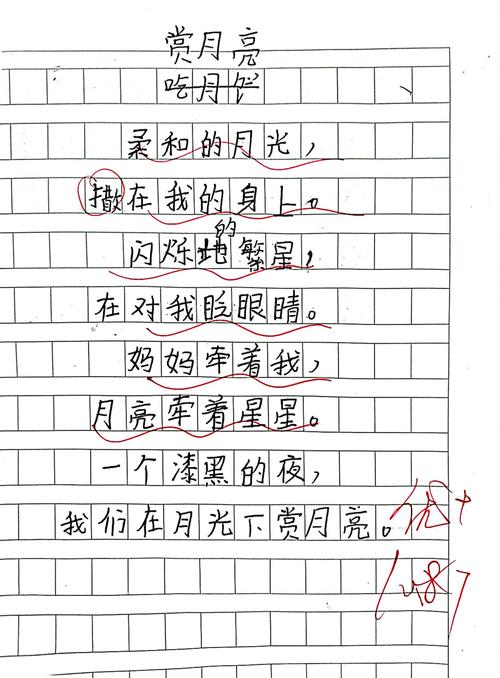 赏月亮
吃月饼
柔和的月光，
撒在我的身上。
的
闪烁地繁星，
在对我眨眼睛。
妈妈牵着我，
月亮牵着星星。
一个漆黑的夜，
我们在月光下赏月亮。
优+